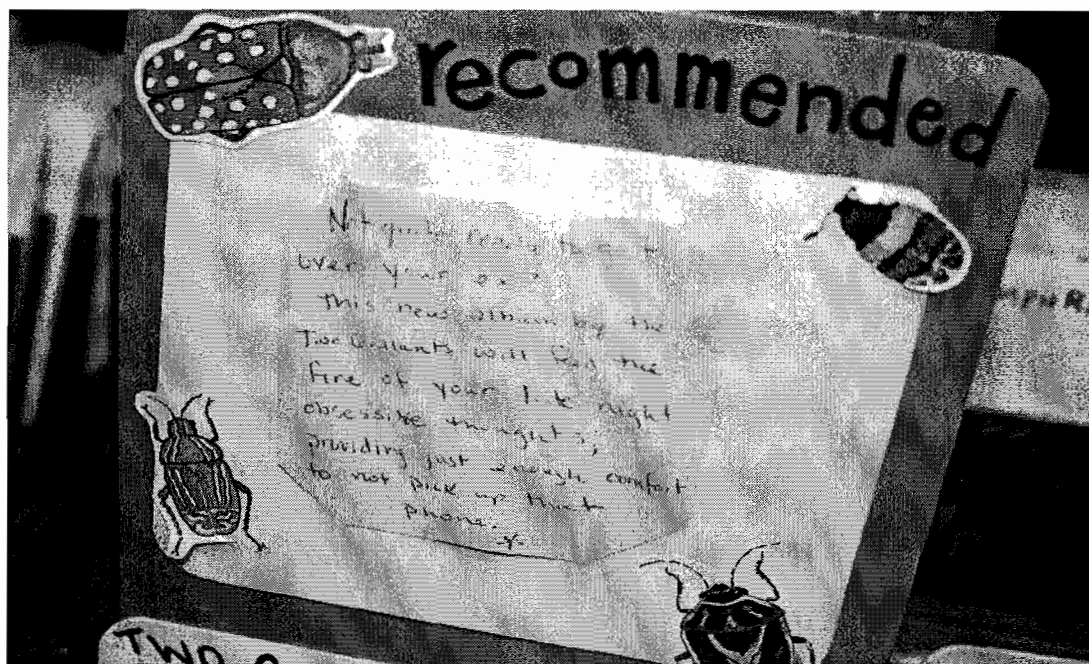 recommended
Not quite ready to get
over your ex?
This new album by the
Two Gallants will feed the
fire of your late night
obsessive thoughts,
providing just enough comfort
to not pick up that
phone.
TWO